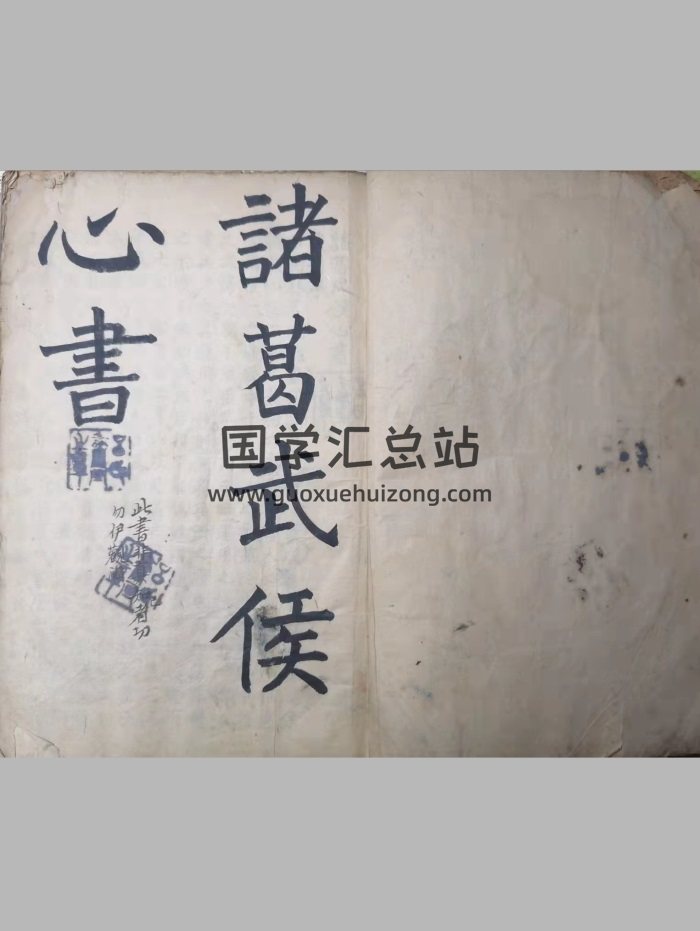 諸葛武侯
心書
此書者切
勿伊
国学汇总站
www.guoxuehuizong.com